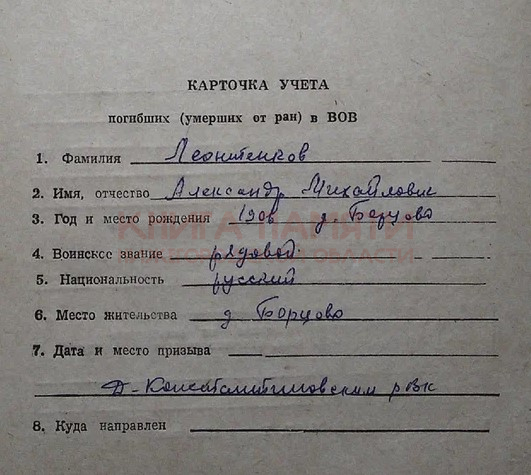 КАРТОЧКА УЧЕТА
погибших (умерших от ран) в ВОВ
1. Фамилия Леонтенков
2. Имя, отчество Александр Михайлович
3. Год и место рождения 1906 д. Борцово
КНИГА ПАМЯТИ
ОБЛАСТИ
4. Воинское звание рядовой
5. Национальность русский
6. Место жительства д Борцово
7. Дата и место призыва
Д-Константиновским рвк
8. Куда направлен